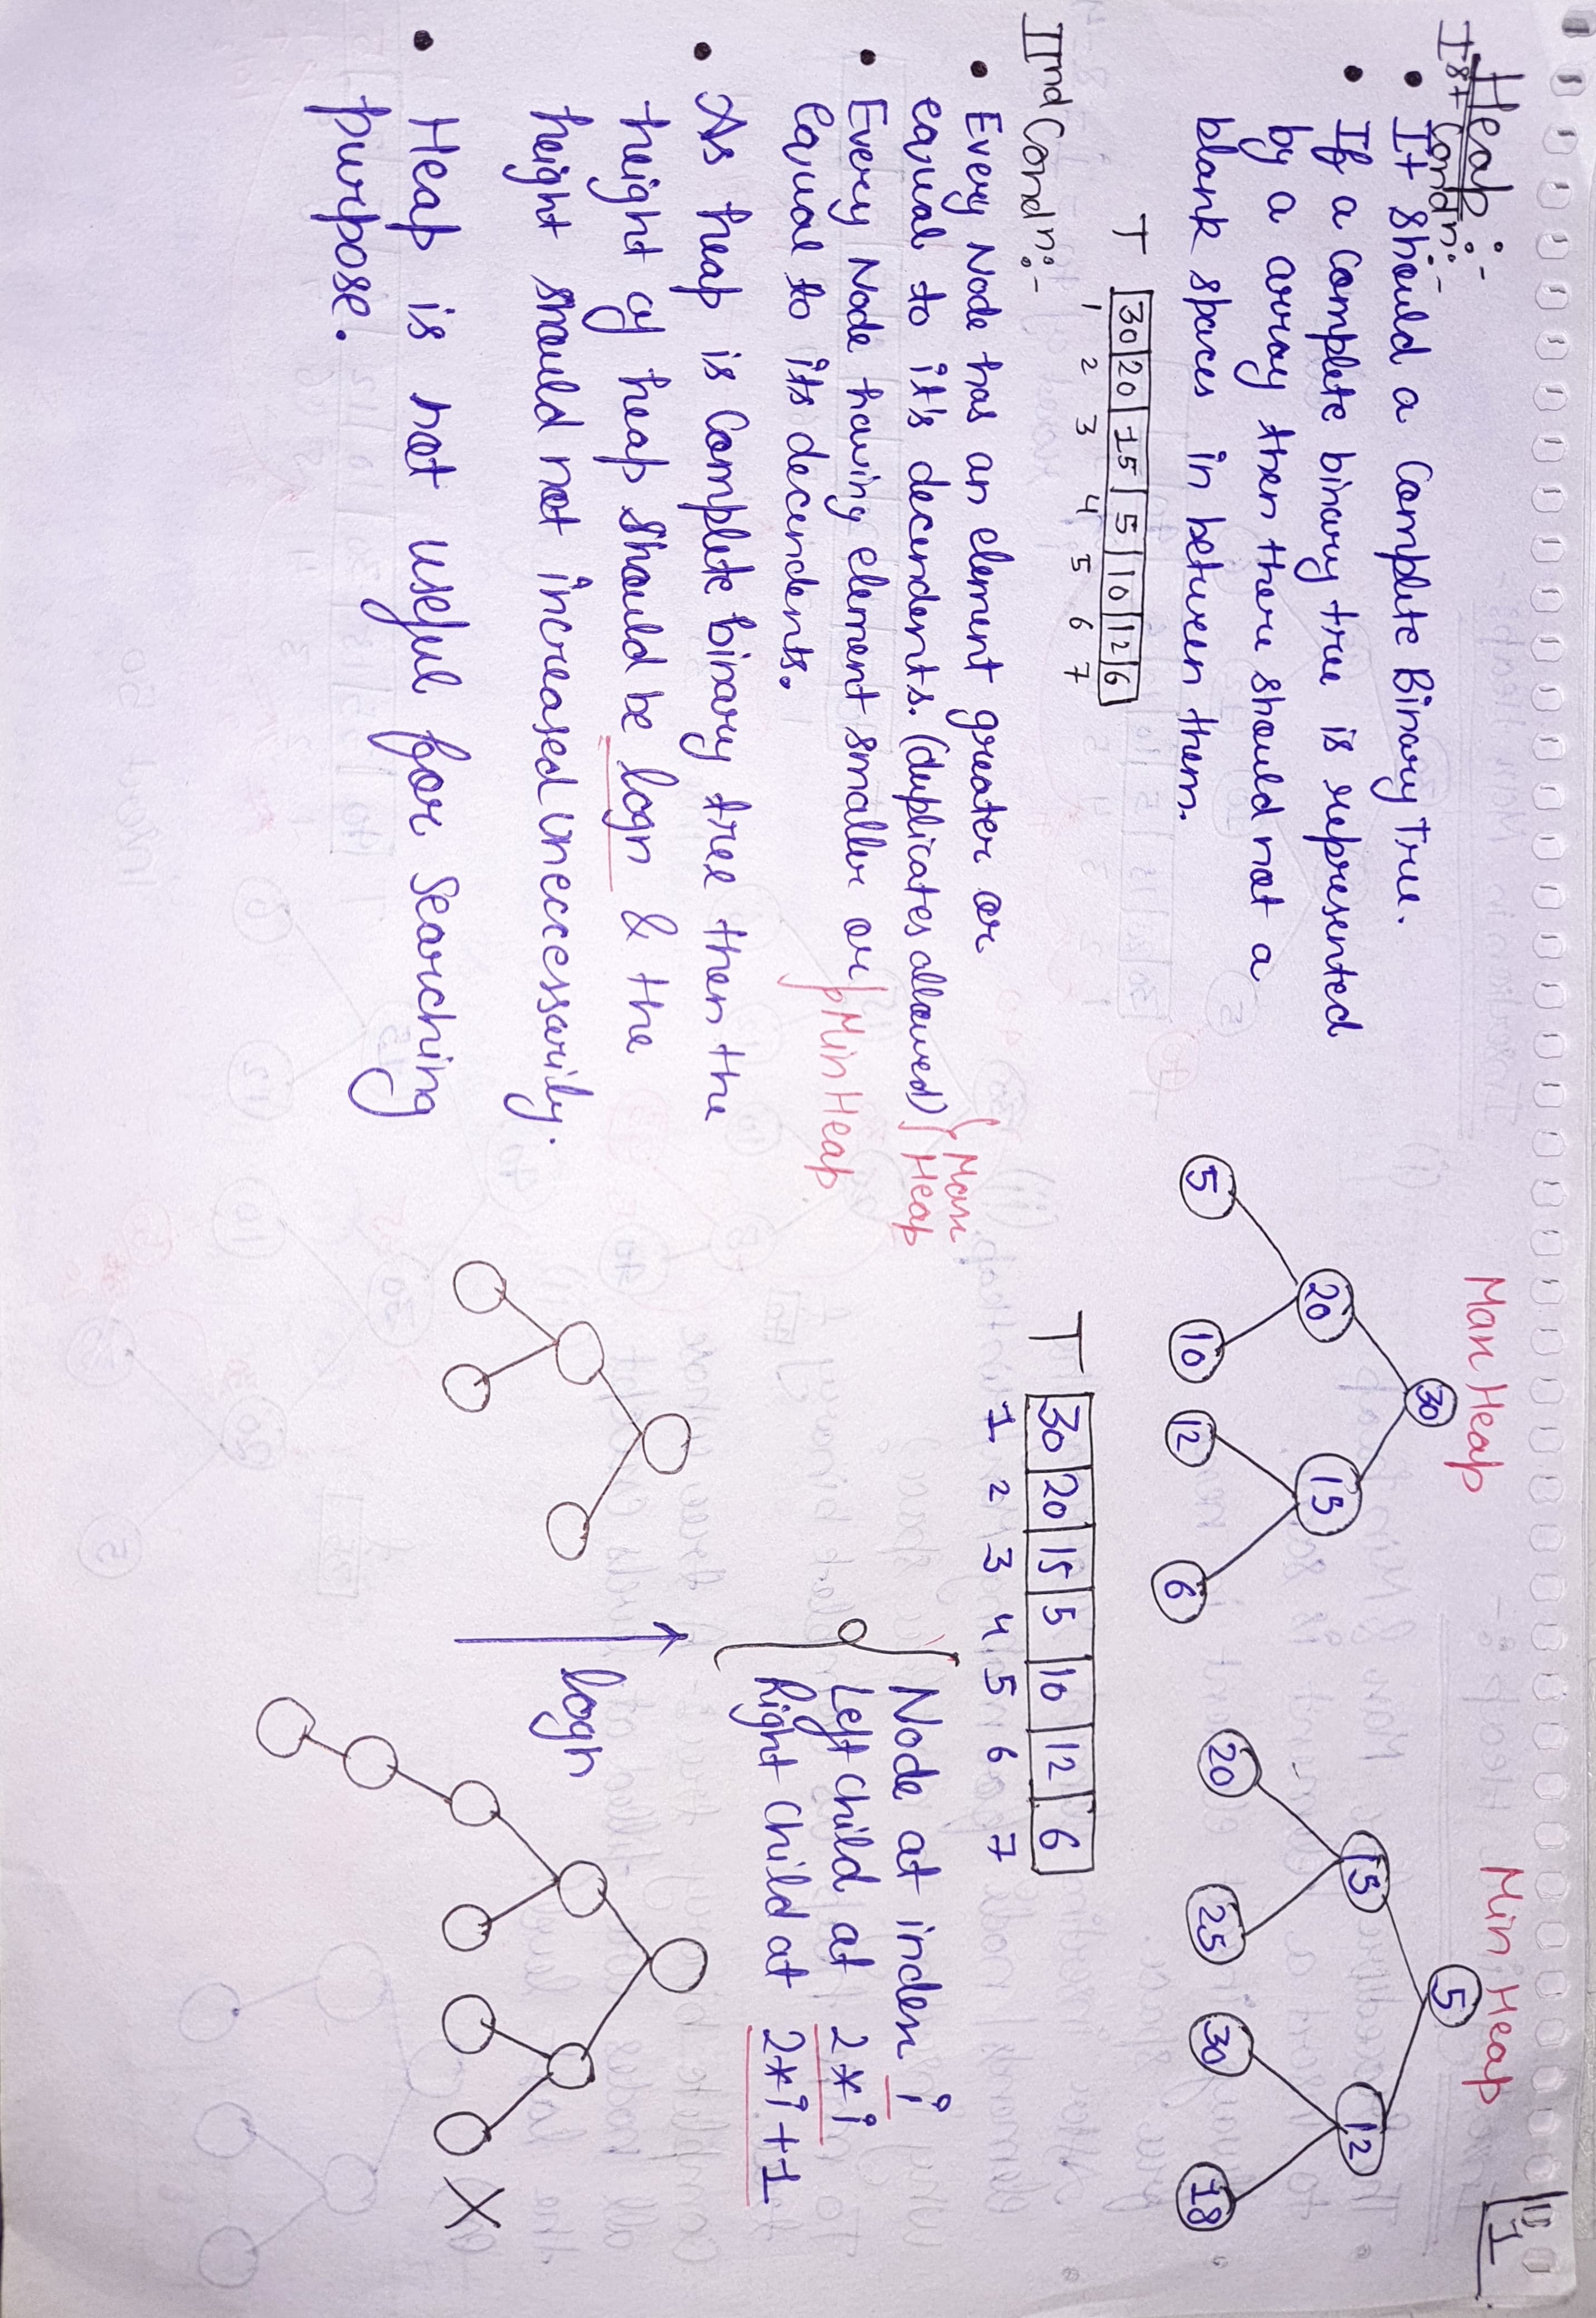 1
Heap :-
Ist Condn:-
• It should a Complete Binary Tree.
• If a Complete binary tree is represented
by a array then there should not a
blank spaces in between them.
T 30 20 15 5 10 12 6
1 2 3 4 5 6 7
IInd Condn:-
• Every Node has an element greater or
equal to it's decendents. (duplicates allowed)
Max
Heap
• Every Node having element smaller or
equal to its decendents.
Min Heap
• As heap is Complete binary tree then the
height of heap should be logn & the
height should not increased uneccessarily.
• Heap is not useful for searching
purpose.
Max Heap
30
20 15
5 10 12 6
Min Heap
5
15 12
20 25 30 18
T 30 20 15 5 10 12 6
1 2 3 4 5 6 7
Node at index i
Left child at 2*i
Right child at 2*i+1
logn
X